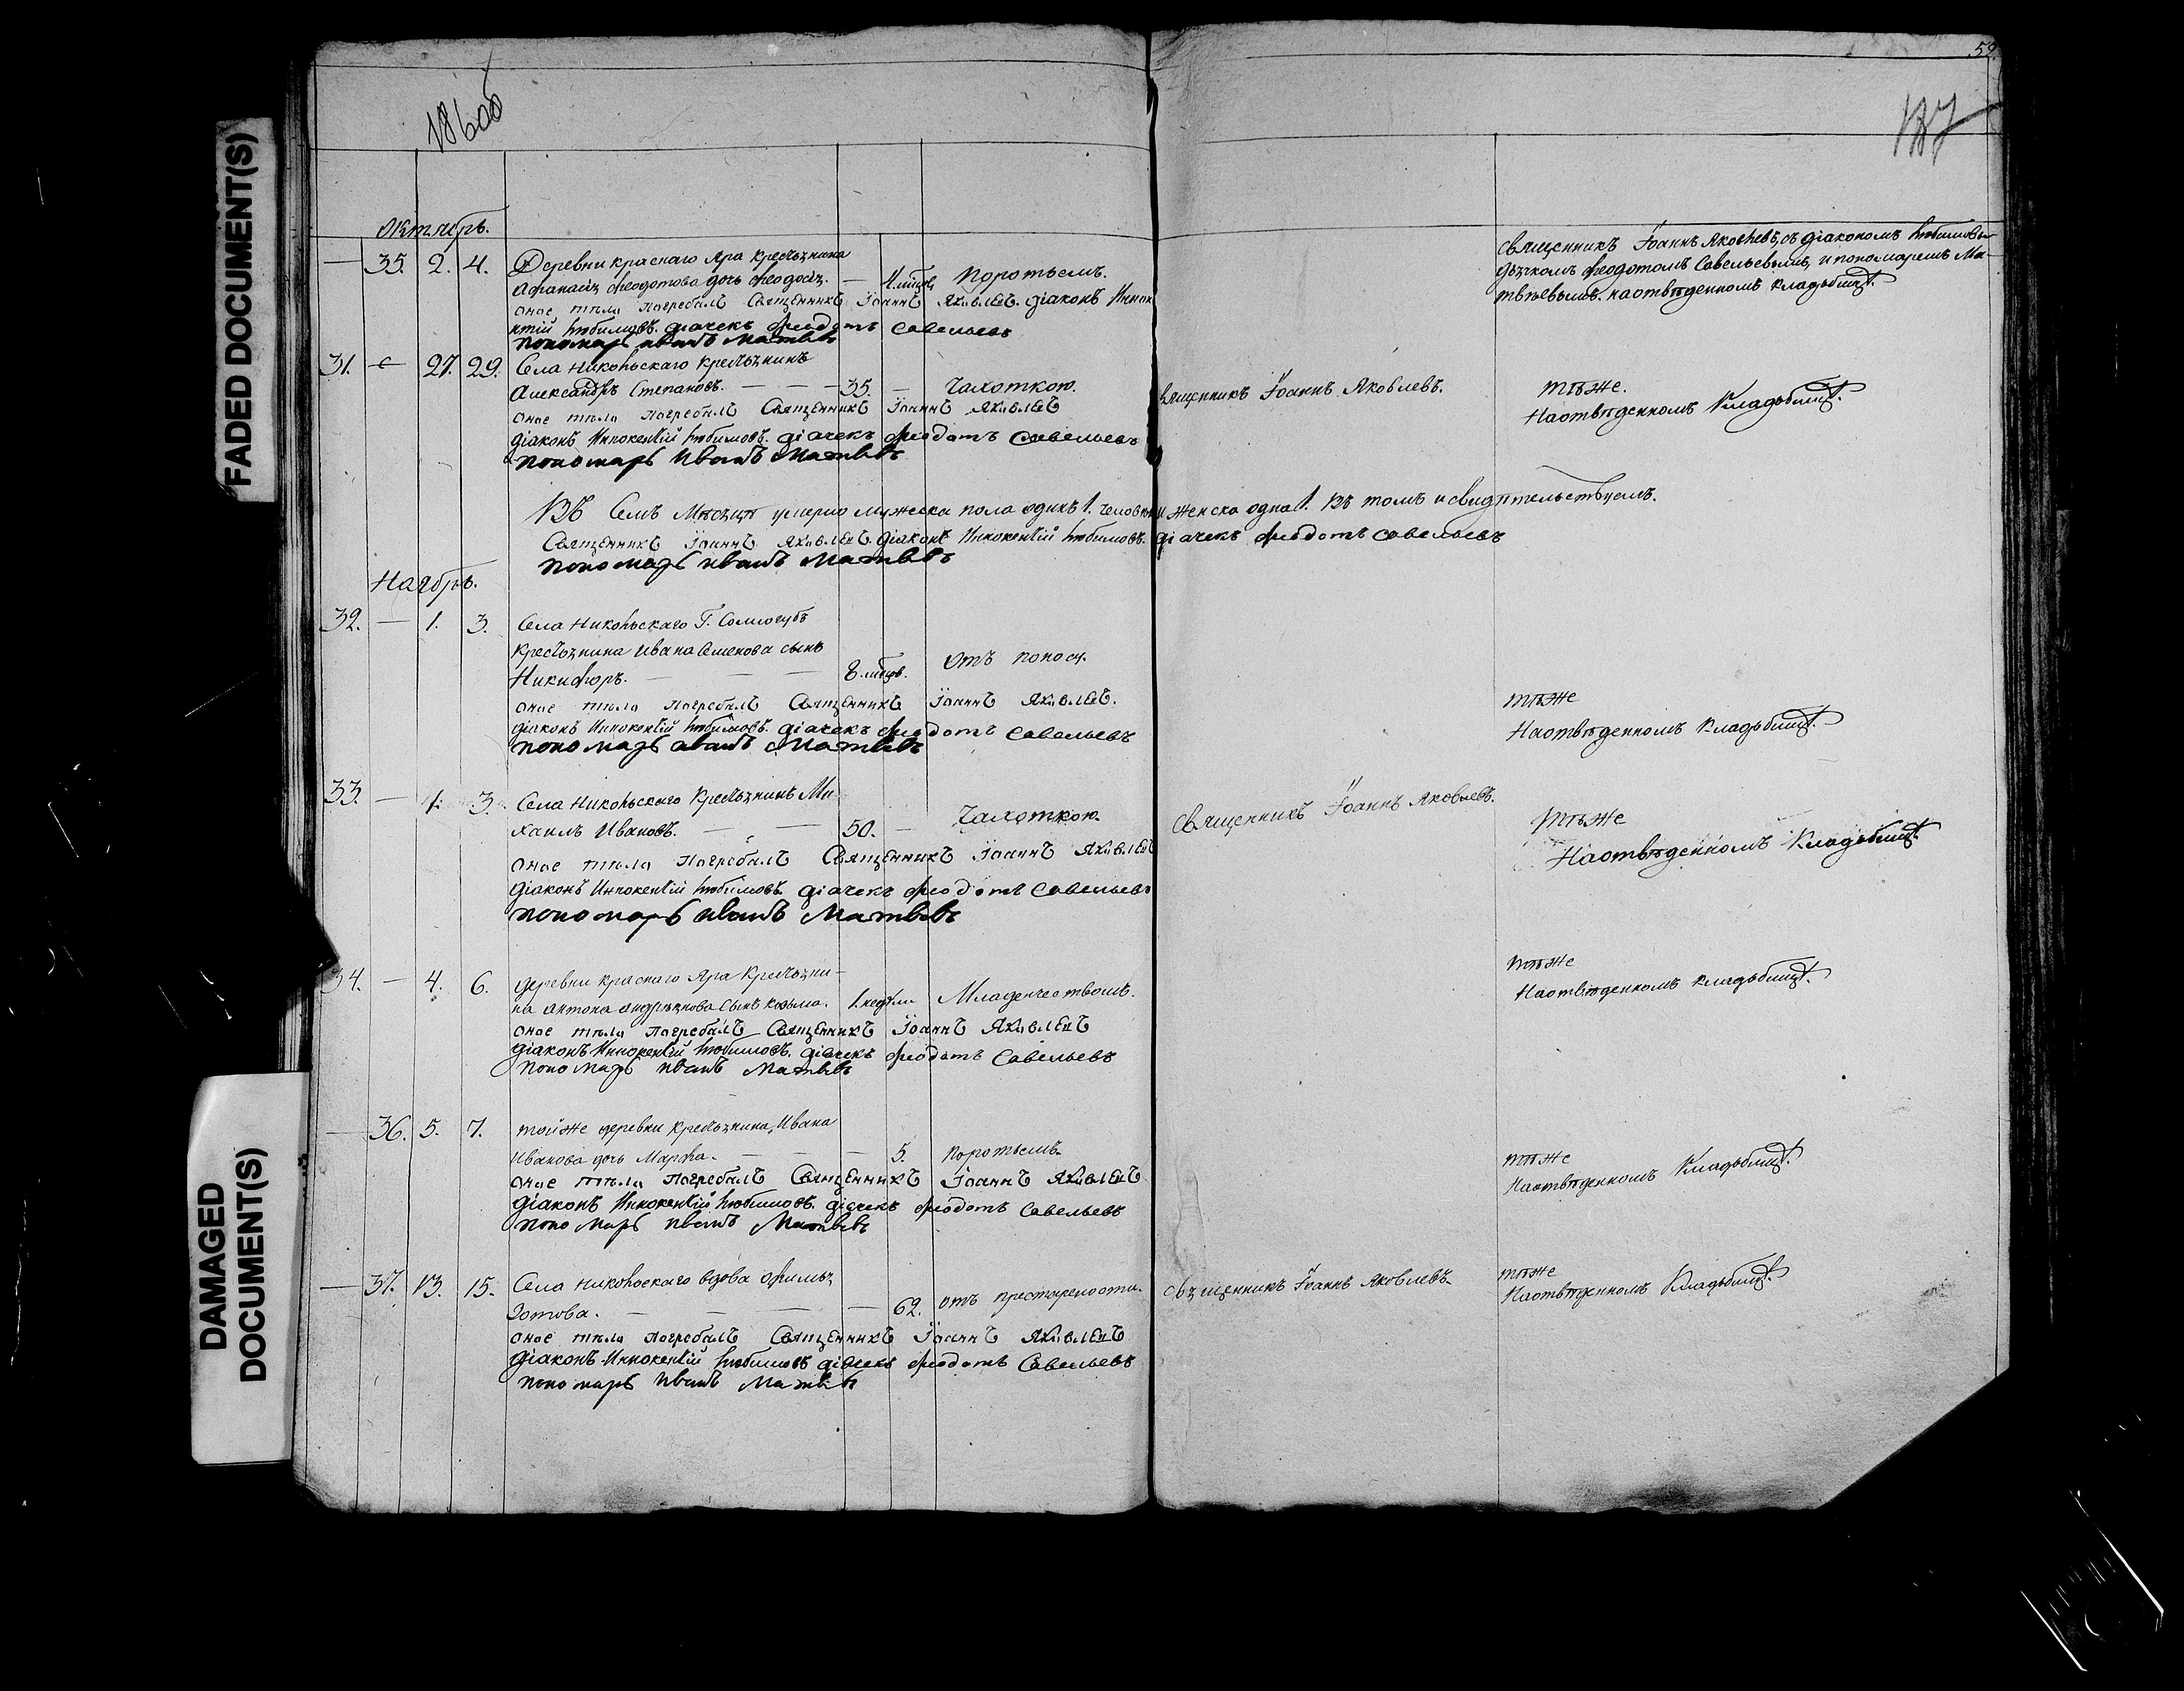 FADED DOCUMENT(S)
DAMAGED DOCUMENT(S)
186 об
59.
187
Октябрь.
— 35. 2. 4. Деревни краснаго Яра крестьянина
Афанасія Феодотова дочь Феодосія. — 4. мѣсяц. Коротьемъ.
оное тѣло погребалъ Священникъ Іоаннъ Яковлевъ. діаконъ Инноке
нтій Любимовъ. діачекъ Феодотъ Савельевъ
пономарь иванъ Матвѣевъ
священникъ Іоаннъ Яковлевъ, съ діакономъ Любимовы
дьячкомъ Феодотомъ Савельевымъ, и пономаремъ Ма-
твѣевымъ. на отвѣденномъ кладьбищѣ.
31. — 27. 29. Села Никольскаго крестьянинъ
Александръ Степановъ. — — — 35. — Чахоткою. священникъ Іоаннъ Яковлевъ. тѣже.
На отвѣденномъ Кладьбищѣ.
оное тѣло погребалъ Священникъ Іоаннъ Яковлевъ
діаконъ Иннокентій Любимовъ. діачекъ Феодотъ Савельевъ
пономарь Иванъ Матвѣевъ
Въ Семъ Мѣсяцѣ умерло мужеска пола одинъ 1. человѣкъ и женска одна 1. Въ томъ и свидѣтельствуемъ.
Священникъ Іоаннъ Яковлевъ діаконъ Иннокентій Любимовъ. діачекъ Феодотъ Савельевъ
пономарь иванъ Матвѣевъ
Ноябрь.
32. — 1. 3. Села Никольскаго Г. Сологубъ
крестьянина Ивана Семенова сынъ
Никифоръ. — — — 8. мѣсяц. Отъ поносу.
оное тѣло погребалъ Священникъ Іоаннъ Яковлевъ.
діаконъ Иннокентій Любимовъ. діачекъ Феодотъ Савельевъ
пономарь иванъ Матвѣевъ
тѣже
На отвѣденномъ Кладьбищѣ.
33. — 1. 3. Села Никольскаго Крестьянинъ Ми
хаилъ Ивановъ. — — 50. — Чахоткою. священникъ Іоаннъ Яковлевъ. тѣже
На отвѣденномъ Кладьбищѣ.
оное тѣло погребалъ Священникъ Іоаннъ Яковлевъ
діаконъ Иннокентій Любимовъ. діачекъ Феодотъ Савельевъ
пономарь иванъ Матвѣевъ
34. — 4. 6. деревни краснаго Яра Крестьяни-
на Антона Андреянова Сынъ Козьма. 1. недѣли Младенчествомъ.
оное тѣло погребалъ Священникъ Іоаннъ Яковлевъ
діаконъ Иннокентій Любимовъ. діачекъ Феодотъ Савельевъ
пономарь иванъ Матвѣевъ
тѣже
На отвѣденномъ кладьбищѣ.
— 36. 5. 7. тойже деревни крестьянина, Ивана
Иванова дочь Марфа. — — — 5. Коротьемъ.
оное тѣло погребалъ Священникъ Іоаннъ Яковлевъ
діаконъ Иннокентій Любимовъ. діачекъ Феодотъ Савельевъ
пономарь иванъ Матвѣевъ
тѣже
На отвѣденномъ Кладьбищѣ.
— 37. 13. 15. Села Никольскаго вдова Офимья
Зотова. — — — — 62. отъ престарелости. священникъ Іоаннъ Яковлевъ. тѣже
На отвѣденномъ Кладьбищѣ.
оное тѣло погребалъ Священникъ Іоаннъ Яковлевъ
діаконъ Иннокентій Любимовъ діачекъ Феодотъ Савельевъ
пономарь иванъ Матвѣевъ